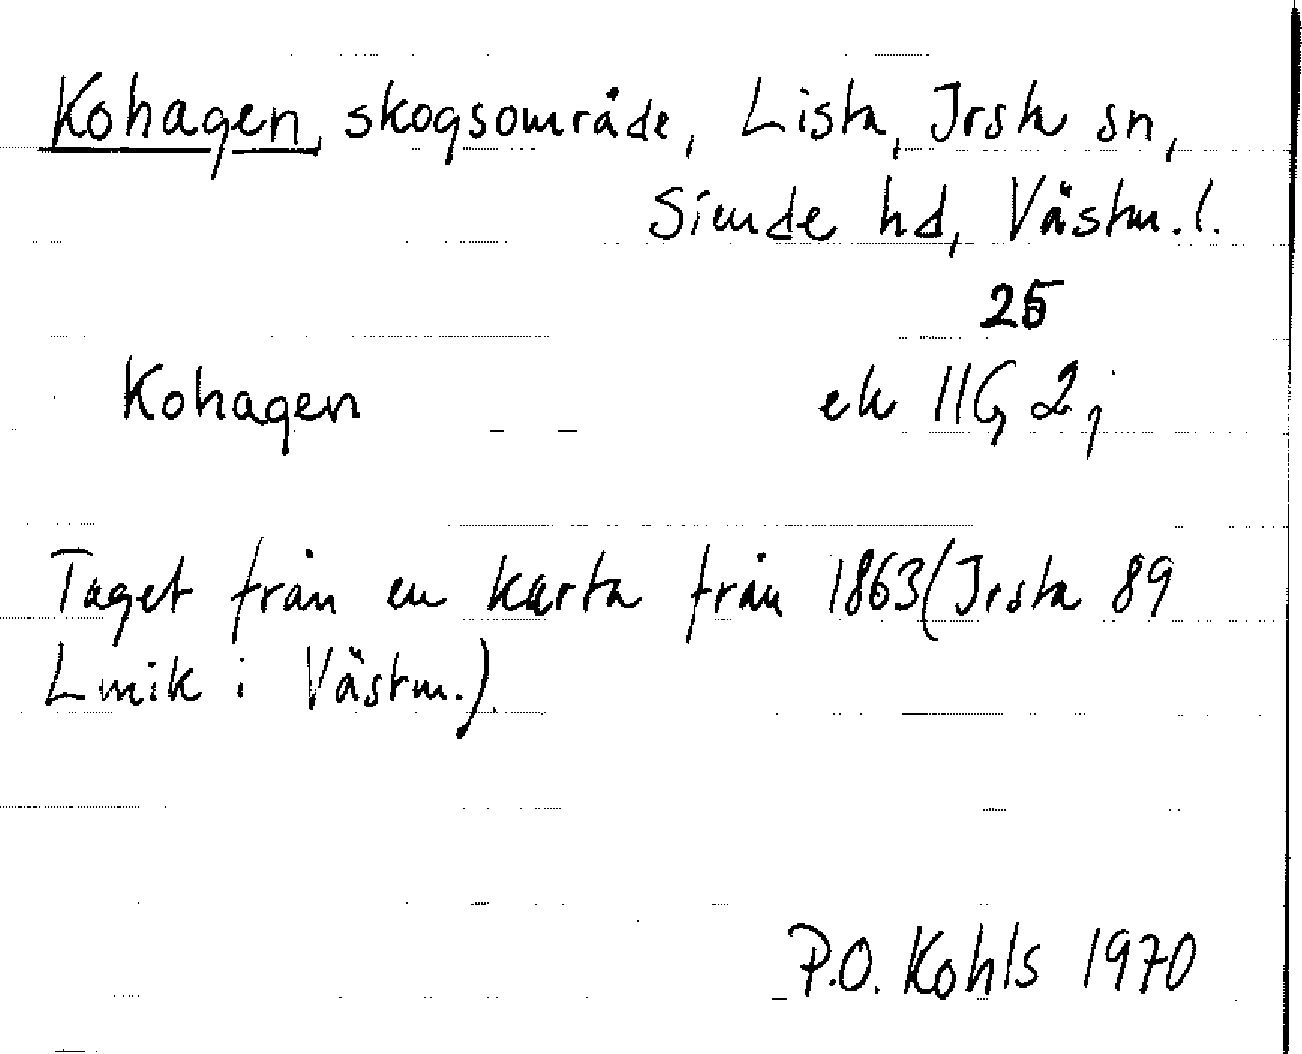 Kohagen, skogsområde, Lista, Irsta sn,
Siende hd, Västm. l.
25
Kohagen ek 11G 2j
Taget från en karta från 1863 (Irsta 89
Lmik i Västm.).
P.O. Kohls 1970